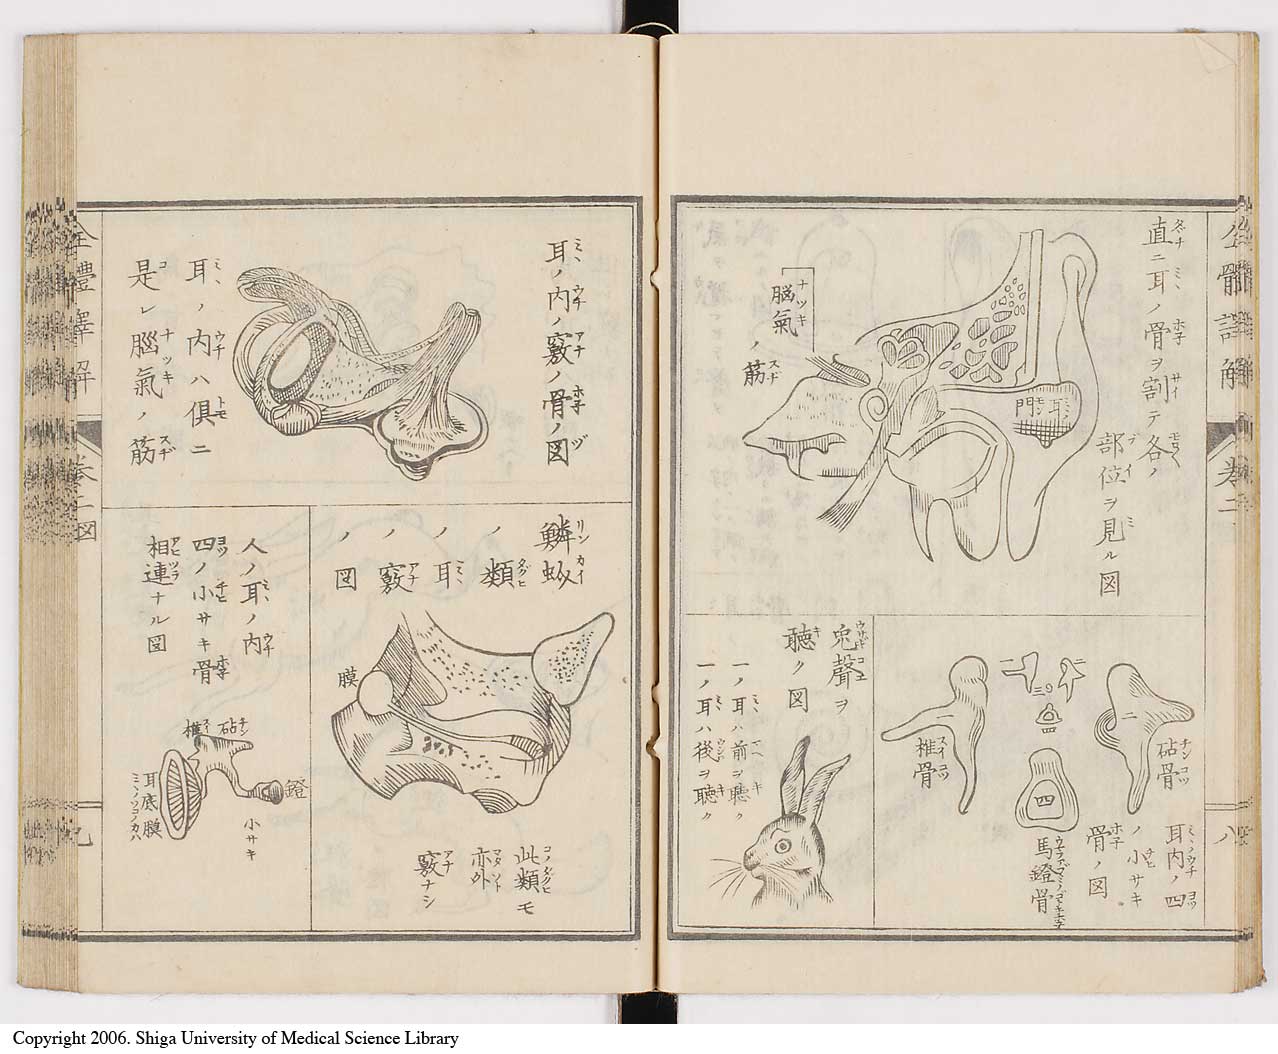 直ニ耳ノ骨ヲ割テ各ノ
部位ヲ見ル図
耳門
脳氣ノ筋
耳内ノ四
ノ小サキ
骨ノ図
二
砧骨
三
四
四
馬鐙骨
椎骨
兎聲ヲ
聴ク図
一ノ耳ハ前ヲ聴ク
一ノ耳ハ後ヲ聴ク
巻二
八
耳ノ内ノ竅ノ骨ノ図
耳ノ内ハ俱ニ
是レ腦氣ノ筋
鱗蚧
ノ類
ノ耳
ノ竅
ノ図
膜
此類モ
亦外
竅ナシ
人ノ耳ノ内
四ノ小サキ骨
相連ナル図
砧
椎
鐙
小サキ
耳底膜
全體譯解
巻二図
九
Copyright 2006. Shiga University of Medical Science Library